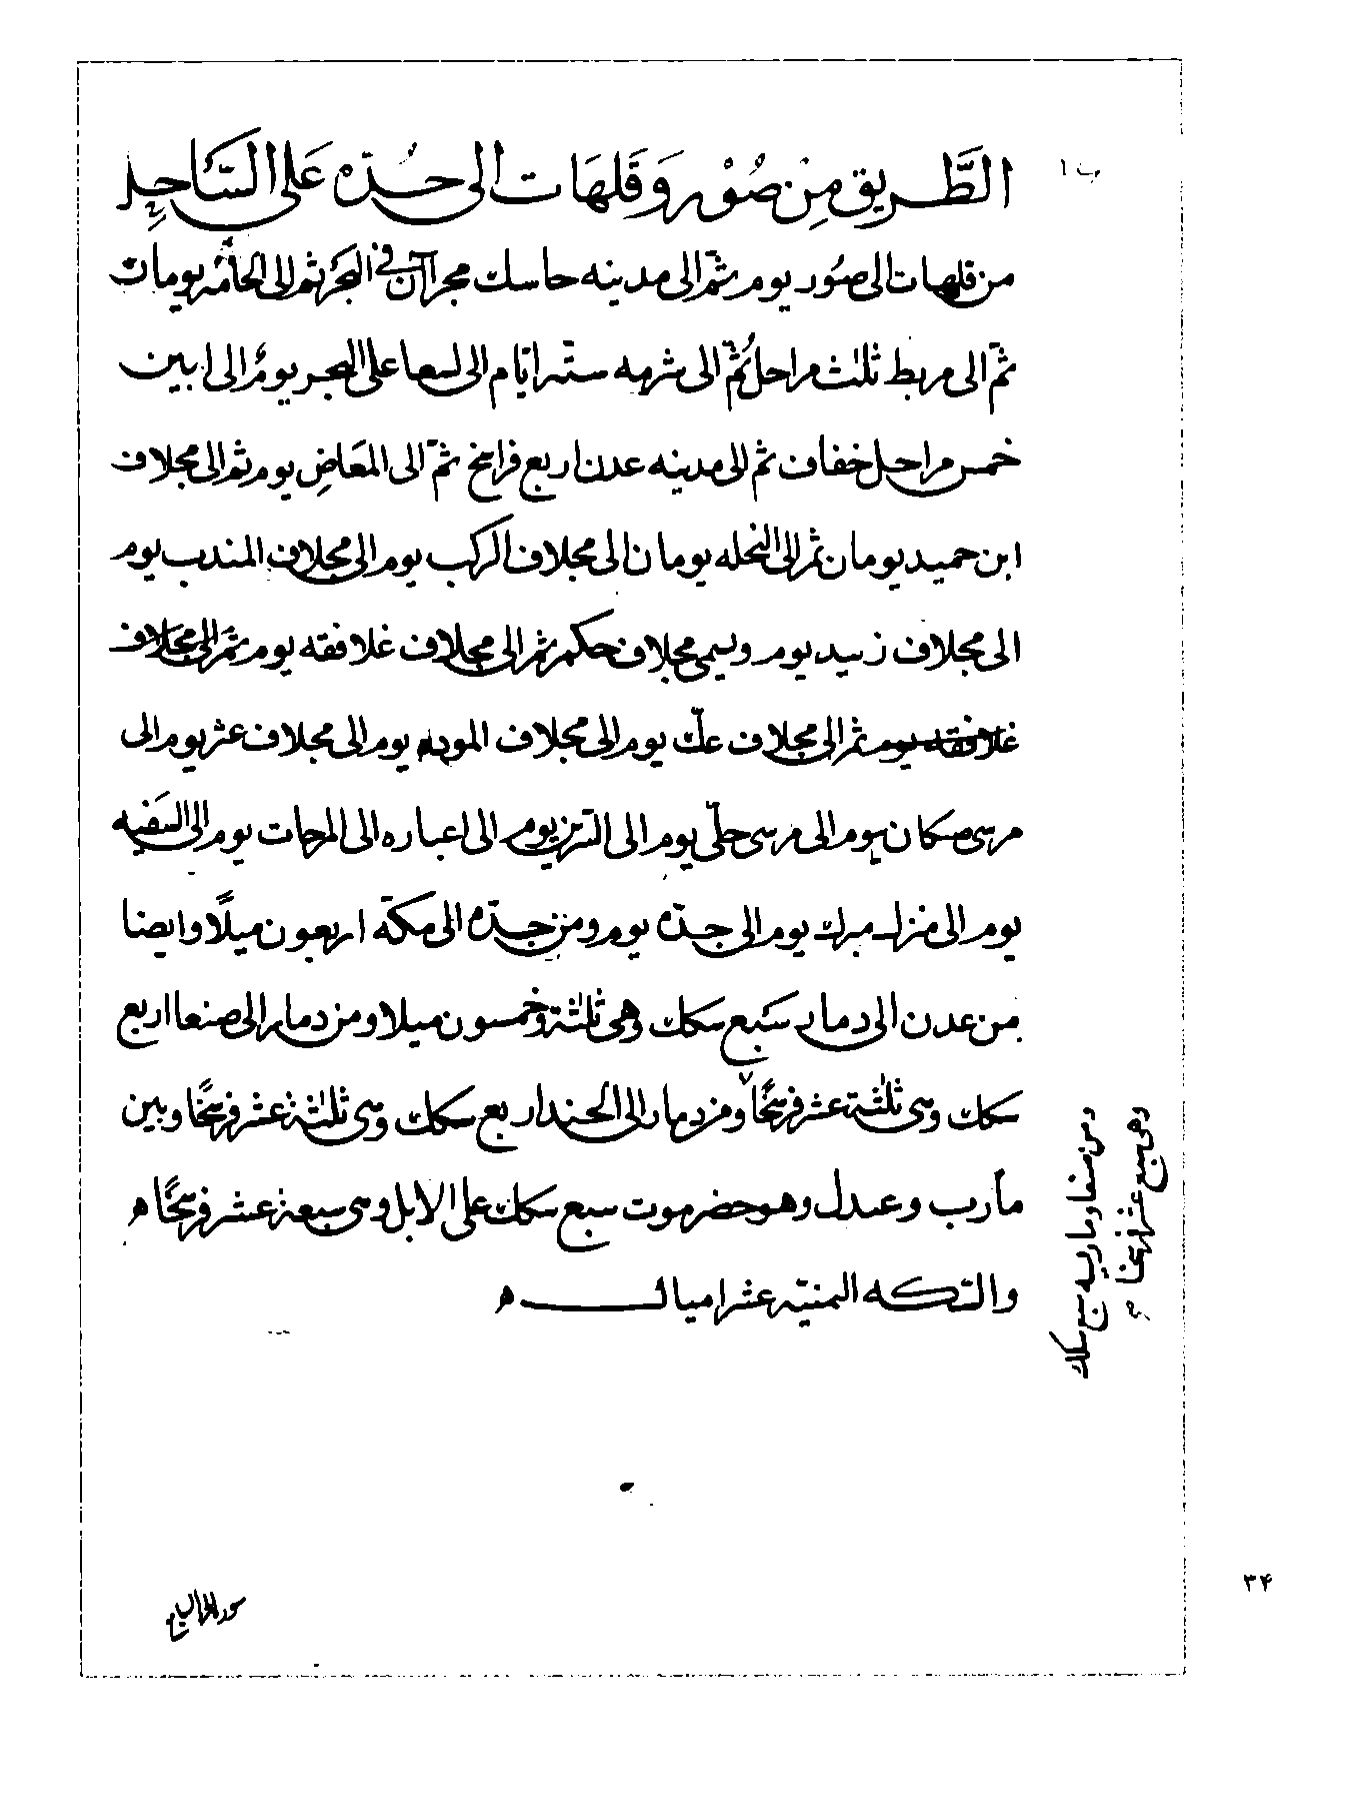 ب ١
الطَّريق مِن صُوْر وَقَلهَات الى جُدّه عَلى السَّاحِل
من قلهات الى صُور يوم ثمّ الى مدينه حاسك مجرآن في البحر ثم الى الحامه يومان
ثمّ الى مربط ثلٰث مراحل ثُمّ الى شرمه ستّه ايّام الى لسعا على البحر يومٌ الى ابين
خمس مراحل خفاف ثم الى مدينه عدن اربع فراسخ ثمّ الى المعَاضِ يوم ثم الى مجلاف
ابن حميد يومان ثم الى النحله يومان الى مجلاف الركب يوم الى مجلاف المندب يوم
الى مجلاف زبيد يوم ويسمى مجلاف حكم ثم الى مجلاف غلافقه يوم ثم الى مجلاف
غلافقه يوم ثم الى مجلاف عكّ يوم الى مجلاف يوم الى مجلاف عثر يوم الى
مرسى ضنكان يوم الى مرسى حلّي يوم الى السّرين يوم الى اعباره الى المرجات يوم الى السَفيه
يوم الى منزل مبرك يوم الى جدّه يوم ومن جدّه الى مكّه اربعون ميلًا وايضا
من عدن الى دمار سَبع سكك وهى ثلٰثة وخمسون ميلا ومن دمار الى صنعا اربع
سكك وهى ثلٰثة عشر فرسخًا ومن دمار الى الحند اربع سكك وهى ثلٰثة عشر فرسخًا وبين
مأرب وعبدل وهو حضرموت سبع سكك على الابل وهى سبعة عشر فرسخًا ه
والسّكه اليمنيّه عشر اميال ه
ومن صنعا ومارب سبع سكك
وهى سبع عشر فرسخا
٣۴